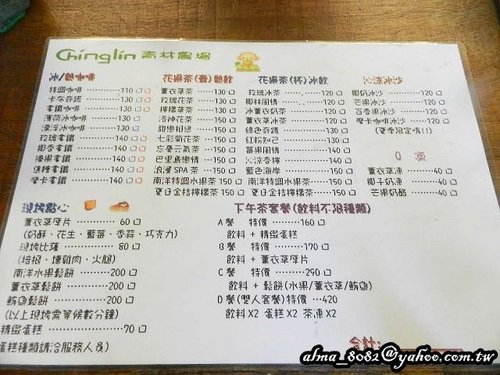 Chinglin 青林農場
花果茶(壺)熱飲
花果茶(杯)冰飲
特調咖啡 110
卡布奇諾 130
拿鐵咖啡 130
漂浮冰咖啡 130
玫瑰拿鐵 140
椰香拿鐵 140
榛果拿鐵 140
焦糖拿鐵 140
摩卡拿鐵 140
薰衣草茶 130
玫瑰花茶 130
檸檬草茶 130
洛神花茶 130
甜戀相思 130
七彩菊花茶 130
忘憂元氣茶 130
巴里島戀情 130
浪漫SPA茶 130
南洋特調水果茶 150
夏日金桔檸檬茶 150
玫瑰冰茶 120
椰林風情 120
冰薰衣奶茶 120
薰衣草冰茶 120
綠色奇蹟 120
紅粉知己 120
薔薇風情 120
沁涼香檸 120
藍色海岸 120
南洋特調水果茶 150
夏日金桔檸檬茶 150
椰奶冰沙
芒果冰沙
百香果冰沙
摩卡咖啡冰沙
(夏季限定喔!!)
薰衣草凍
椰子奶凍
芒果奶酪
現烤點心
薰衣草厚片 60
(奶酥、花生、藍莓、香蒜、巧克力)
現烤比薩 80
(培根、燻雞肉、火腿)
南洋水果鬆餅 200
薰衣草鬆餅 200
鮪魚鬆餅 200
(以上現烤需等候數分鐘)
精緻蛋糕 70
蛋糕種類請洽服務人員)
下午茶套餐(飲料不限種類)
A餐 特價 160
飲料 + 精緻蛋糕
B餐 特價 170
飲料 + 薰衣草厚片
C餐 特價 290
飲料 + 鬆餅(水果/薰衣草/鮪魚)
D餐(雙人套餐)特價 420
飲料X2 蛋糕X2 茶凍X2
合計:
alma_8082@yahoo.com.tw